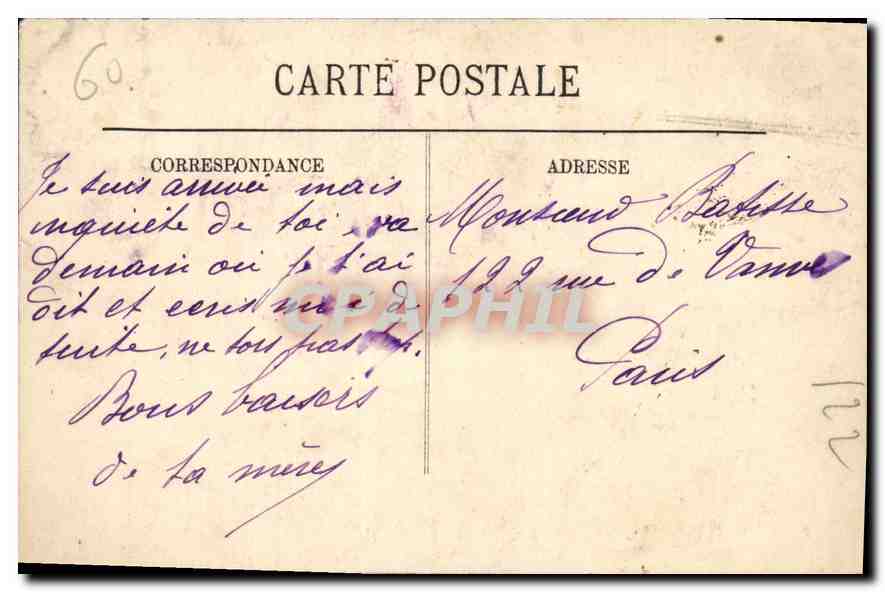 60
CARTE POSTALE
CORRESPONDANCE
Je suis arrivée mais
inquiète de toi, va
demain où je t'ai
dit et ecris moi de
suite, ne sors pas trop.
Bons baisers
de ta mère
ADRESSE
Monsieur Batisse
122 rue de Vanves
Paris
122
CPAPHIL